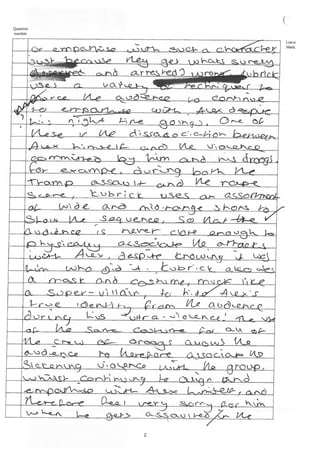 Question
number
Leave
blank
(
or empathise with such a character
just because they get whats surely
deserved and arrested? Kubrick
uses a variety of techniques to
force the audience to continue
to empathise with Alex despite
his night time goings. One of
these is the disassociation between
Alex himself and the violence
committed by him and his droogs.
For example, during both the
Tramp assault and the rape
scene, Kubrick uses an assortment
of wide and midrange shots to
show the sequence, so that the
audience is never close enough to
physically associate the attacks
with Alex, despite knowing it was
him who did it. Kubrick also uses
a mask and costume, much like
a super-villain, to hide Alex's
true identity from the audience
during his 'ultra-violence'. The use
of the same costume for all of
the crew of droogs allows the
audience to therefore associate the
sickening violence with the group,
whilst continuing to align and
empathise with Alex himself, and
therefore feel very sorry for him
when he gets assaulted in the
2